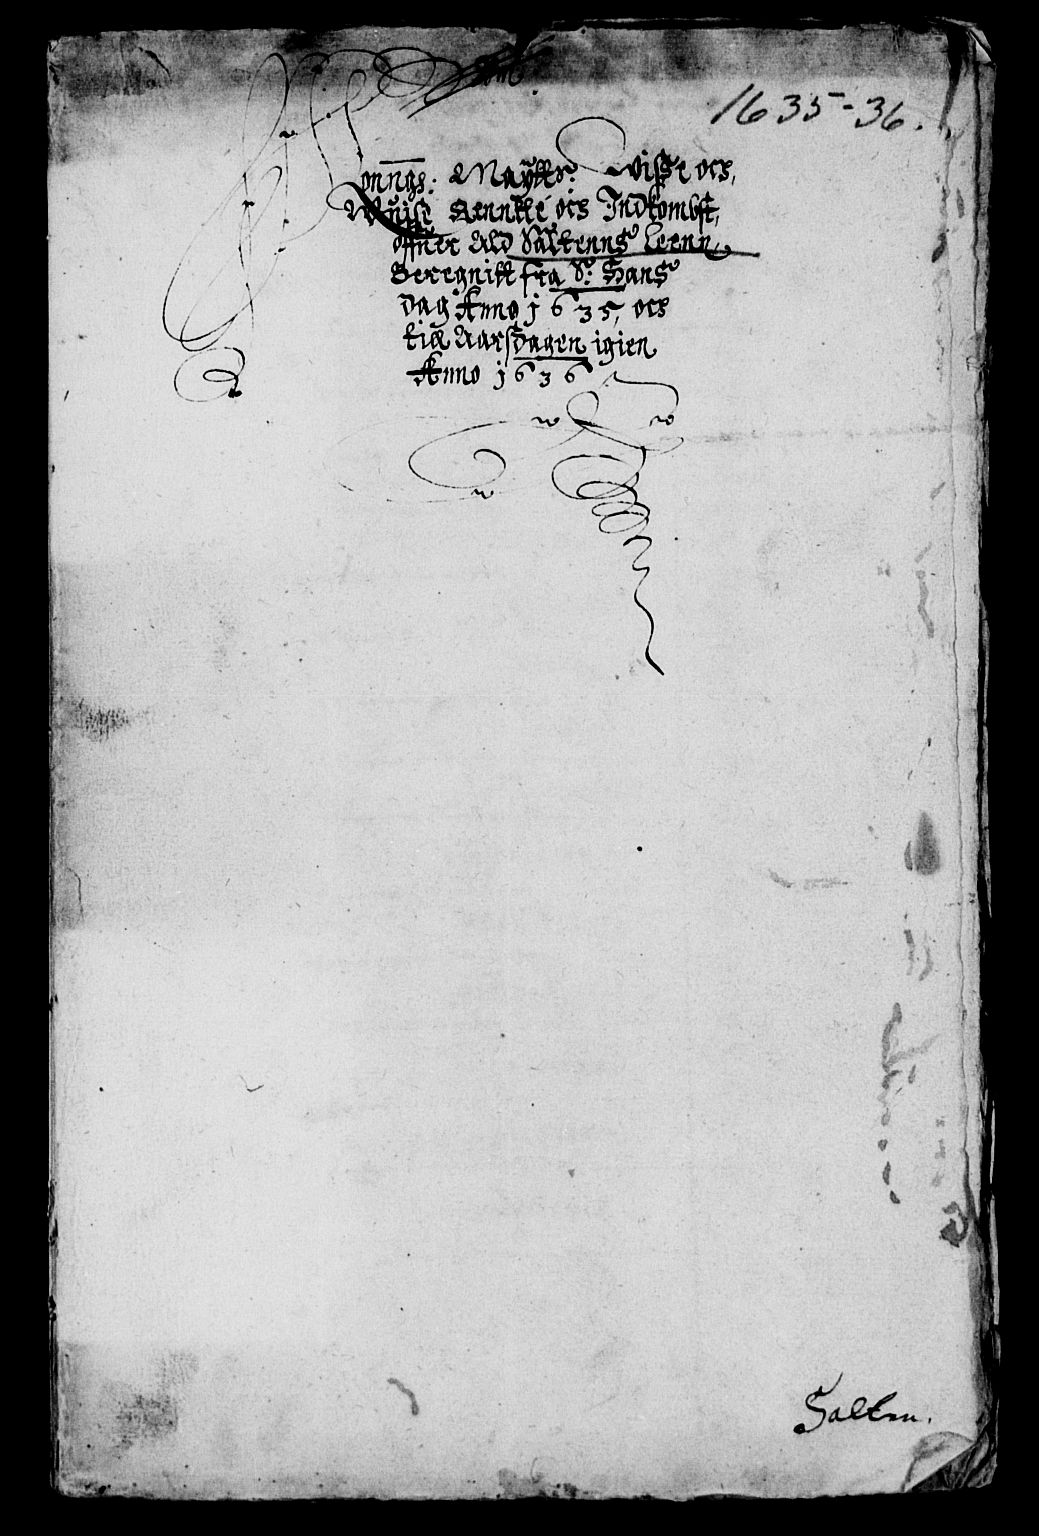 1635-36.
Konngs: Maytts: Wisse och,
Wuise Rennthe och Indkombst,
offuer Ald Saltenns Leenn,
Beregnitt fra St: Hans
dag Anno 1635, och
till Aarsdagen igien
Anno 1636
Salten.